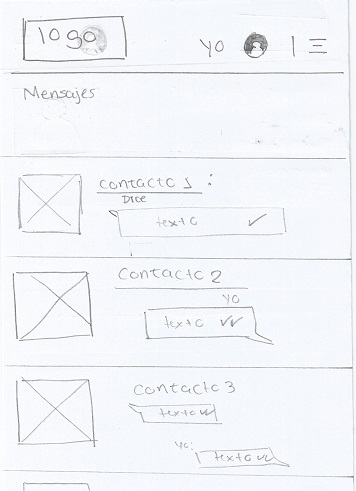 logo
YO
Mensajes
contacto 1 :
Dice
texto
contacto 2
YO
texto
contacto 3
texto
yo:
texto